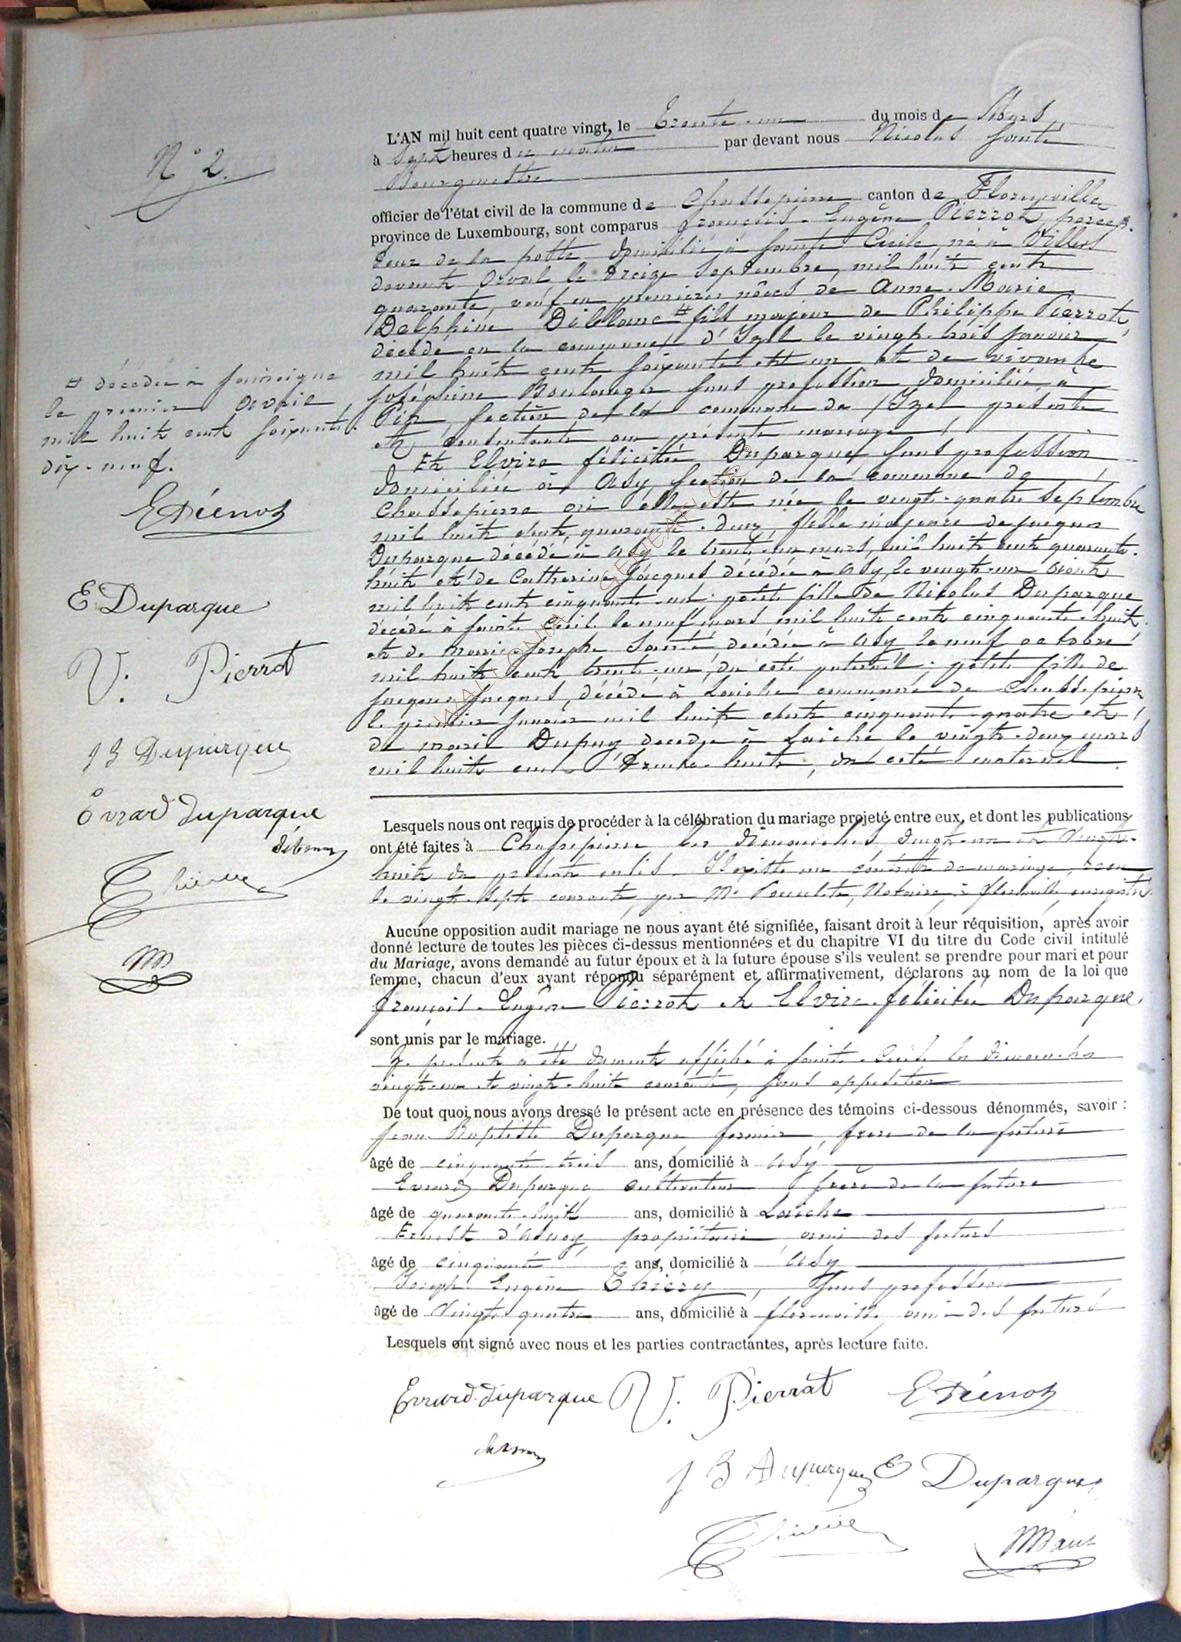 N° 2.
L'AN mil huit cent quatre vingt, le trente-un du mois de Mars
à sept heures du matin par devant nous Nicolas
Bourgmestre
officier de l'état civil de la commune de Chassepierre canton de Florenville
province de Luxembourg, sont comparus François-Eugène Pierrot, percep-
teur de la poste domicilié à Sainte Cécile, né à Villers
devant Orval le treize Septembre mil huit cent
quarante, veuf en premières nôces de Anne-Marie
Delphine Diblanc # fils majeur de Philippe Pierrot,
décédé en la commune d'Izel le vingt-trois Janvier
mil huit cent soixante et un et de vivante
Joséphine Boulanger sans profession, domiciliée à
Pin, section de la commune de Izel présente
et consentante au présent mariage,
Et Elvire félicitée Duparque sans profession
domiciliée à Asy section de la commune de
Chassepierre où elle est née le vingt-quatre Septembre
mil huit cent quarante-deux, fille majeure de Jacques
Duparque décédé à Asy le trente-un mars mil huit cent quarante-
huit et de Catherine Jacques décédée à Asy, le vingt-un Août
mil huit cent cinquante un; petite fille de Nicolas Duparque
décédé à Sainte Cécile le neuf mars mil huit cent cinquante-huit
et de Marie-Joseph décédée à Asy le neuf octobre
mil huit cent trente-un, du coté paternel; petite fille de
Jacques Jacques, décédé à Laiche commune de Chassepierre
le premier Janvier mil huit cent cinquante-quatre et
de Marie Dupuy décédée à Laiche le vingt-deux mars
mil huit cent trente-huit, du coté maternel.
# décédée à
le premier Avril
mil huit cent soixante-
dix-neuf.
E Duparque
V. Pierrot
J B Duparque
Evrard Duparque
Lesquels nous ont requis de procéder à la célébration du mariage projeté entre eux, et dont les publications
ont été faites à Chassepierre les dimanches vingt-un et vingt-
huit du présent mois. Il existe un contrat de mariage, reçu
le vingt-sept courant, par Me Notaire à Florenville, enregistré.
Aucune opposition audit mariage ne nous ayant été signifiée, faisant droit à leur réquisition, après avoir
donné lecture de toutes les pièces ci-dessus mentionnées et du chapitre VI du titre du Code civil intitulé
du Mariage, avons demandé au futur époux et à la future épouse s'ils veulent se prendre pour mari et pour
femme, chacun d'eux ayant répondu séparément et affirmativement, déclarons au nom de la loi que
François-Eugène Pierrot et Elvire-félicitée Duparque,
sont unis par le mariage.
Le présent a été dument affiché à Sainte-Cécile les dimanches
vingt-un et vingt-huit courant, sans opposition
De tout quoi nous avons dressé le présent acte en présence des témoins ci-dessous dénommés, savoir :
Jean Baptiste Duparque fermier, frère de la future
âgé de cinquante trois ans, domicilié à Asy
Evrard Duparque, cultivateur, frère de la future
âgé de quarante-huit ans, domicilié à Laiche
Ernest propriétaire ami des futurs
âgé de cinquante ans, domicilié à Asy
Joseph Eugène Thiéry, sans profession
âgé de vingt-quatre ans, domicilié à Florenville, ami des futurs
Lesquels ont signé avec nous et les parties contractantes, après lecture faite.
Evrard Duparque V. Pierrot
J B Duparque E Duparque